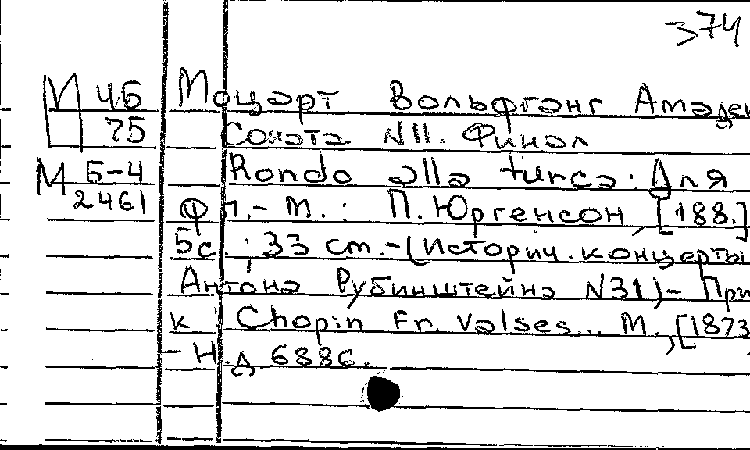 374
И 4Б Моцарт Вольфганг Амадеи
75 Соната N11. Финал
М Б-4 Rondo alla turca. Для
2461 фп.- М.: П. Юргенсон, [188.]
5с.; 33 cm.-(Историч. концерты
Антона Рубинштейна N31)- При
к Chopin Fr. Valses... М., [1873
- Н.д 6886.